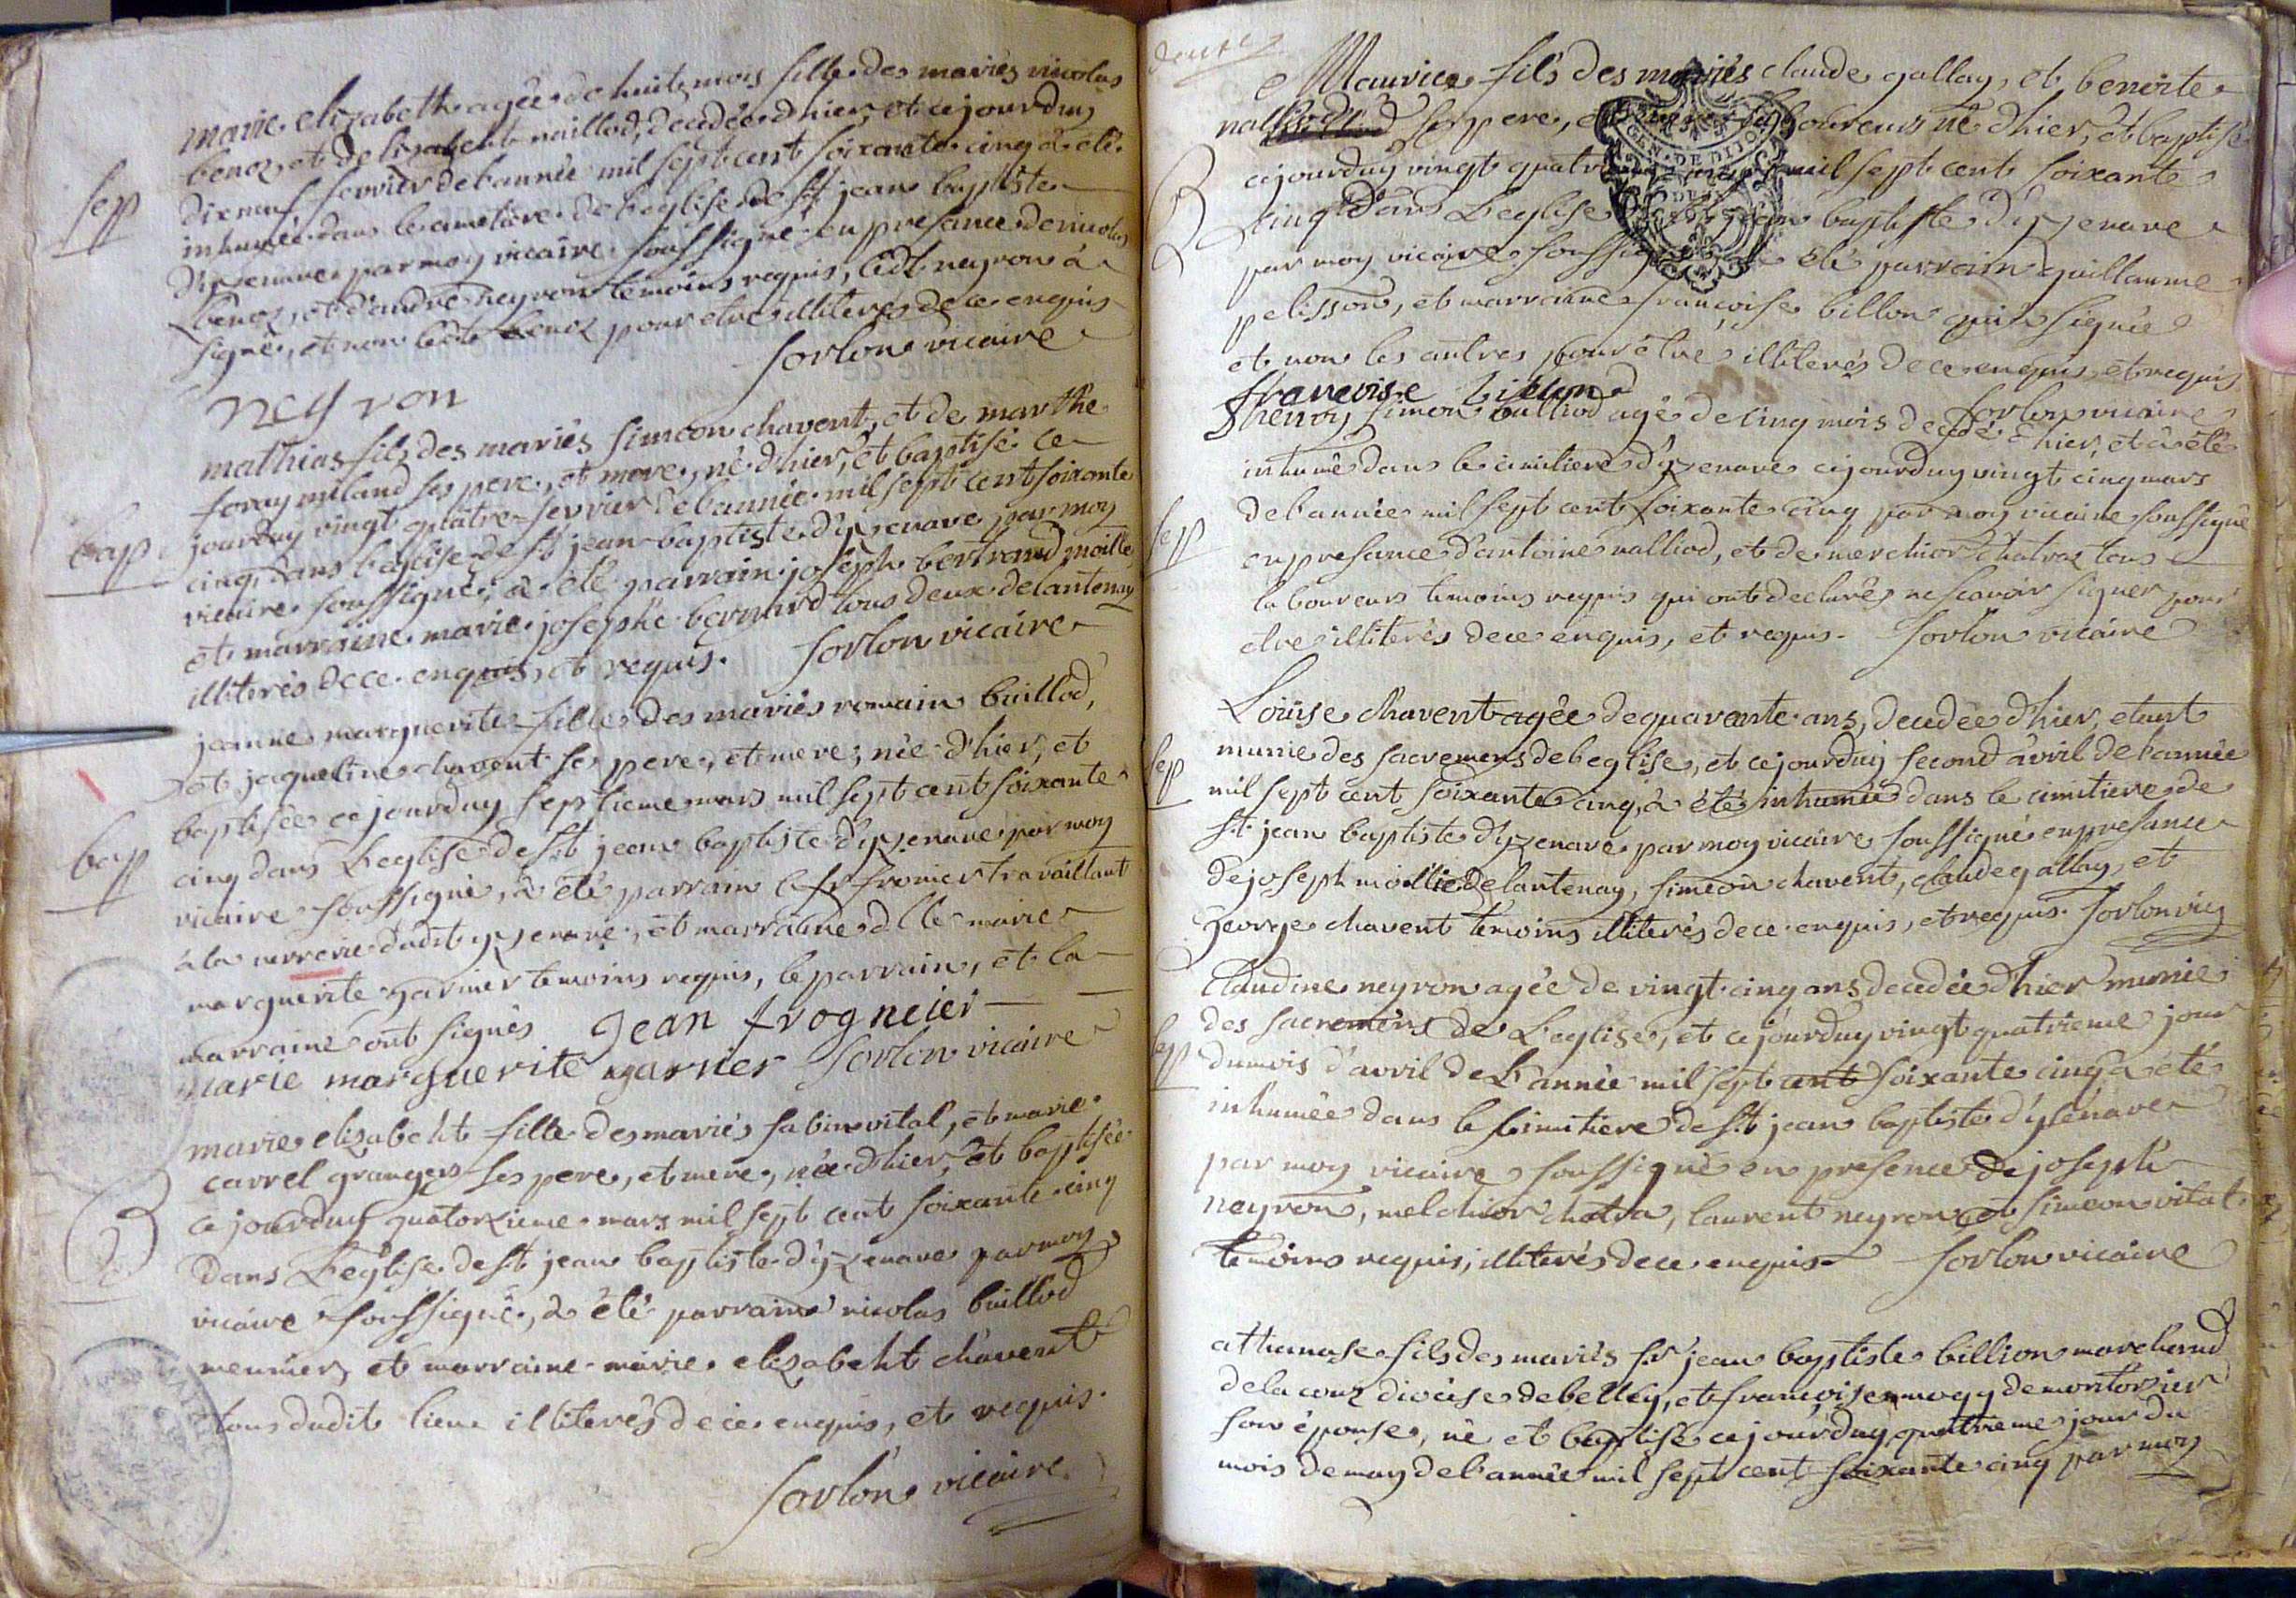 marie elizabeth agée de huit mois fille des mariés nicolas
benoz, et delizabeht naillod, decedée d'hier, et cejourduy
dixneuf fevrier de l'année mil sept cent soixante cinq à été
sep
inhumée dans le cimetiere de l'eglise de st jean baptiste
d'yzenave par moy vicaire soussigné en presance de nicolas
benoz, et d'andré neyron témoins requis, ledt neyron à
signé, et non ledt benoz pour etre illiterés de ce enquis
sorlon vicaire
neyron
mathias fils des mariés simeon chavent, et de marthe
foray miland ses pere, et mere, né d'hier, et baptisé ce
jourduy vingt quatre fevrier de l'année mil sept cent soixante
bap
cinq dans l'eglise de st jean baptiste d'yzenave par moy
vicaire soussigné, à été parrain joseph bertrand moille
et marraine marie josephe bernard tous deux de lantenay
illiterés de ce enquis, et requis. sorlon vicaire
jeanne marguerite fille des mariés romain buillod,
et jaqueline chavent ses pere, et mere, née d'hier, et
baptisée ce jourduy septieme mars mil sept cent soixante
bap
cinq dans l'eglise de st jean baptiste d'yzenave par moy
vicaire soussigné, à été parrain le sr fronier travaillant
à la verrerie dudit yzenave, et marraine dlle marie
marguerite garnier temoins requis, le parrain, et la
marraine ont signés jean frogneier
marie marguerite garnier sorlon vicaire
marie elisabeht fille des mariés sabin vital, et marie
carrel grangers ses pere, et mere, née d'hier, et baptisée
B
ce jourduy quatorzieme mars mil sept cent soixante cinq
dans l'eglise de st jean baptiste d'yzenave par moy
vicaire soussigné, à été parrain nicolas buillod
meunier, et marraine marie elisabeht chavent
tous dudit lieu illiterés de ce enquis, et requis.
sorlon vicaire
douze
Maurice fils des mariés claude gallay, et benoite
nalliod ses pere, et mere laboureurs né d'hier, et baptisé
B
cejourduy vingt quatre mil sept cent soixante
GEN. DE DIJON
cinq dans l'eglise baptiste d'yzenave
par moy vicaire soussigné été parrain guillaume
pelisson, et marraine françoise billon qui à signée
et non les autres pour être illiterés de ce enquis, et requis
francoise billon sorlon vicaire
henry simon nalliod agé de cinq mois decedé d'hier, et à été
inhumé dans le cimitiere d'yzenave cejourduy vingt cinq mars
sep
de l'année mil sept cent soixante cinq par moy vicaire soussigné
en presance d'antoine nalliod, et de merchior chatraz tous
laboureurs temoins requis qui ont declarés ne scavoir signer pour
etre illiterés de ce enquis, et requis. sorlon vicaire
Louise chavent agée de quarente ans, decedée d'hier, etant
sep
munie des sacremens de l'eglise, et cejourduy second avril de l'année
mil sept cent soixante cinq, à été inhumée dans le cimitiere de
st jean baptiste d'yzenave par moy vicaire soussigné en presance
de joseph moille de lantenay, simeon chavent, claude gallay, et
george chavent temoins illiterés de ce enquis, et requis. sorlon vicr
Claudine neyron agée de vingt cinq ans decedée d'hier munie
des sacremens de L'eglise, et cejourduy vingt quatrieme jour
sep
du mois d'avril de L'année mil sept cent soixante cinq à été
inhumée dans le simitiere de st jean baptiste d'ysenave
par moy vicaire soussigné en presence de joseph
neyron, melchior chatra, laurent neyron et simeon vital
temoins requis, illiterés de ce enquis. sorlon vicaire
athanase fils des mariés sr jean baptiste billion marchand
de la couz diocise de belley, et françoise de montorsier
son épouse, né et baptisé cejourduy quatrieme jour du
mois de may de l'année mil sept cent soixante cinq par moy